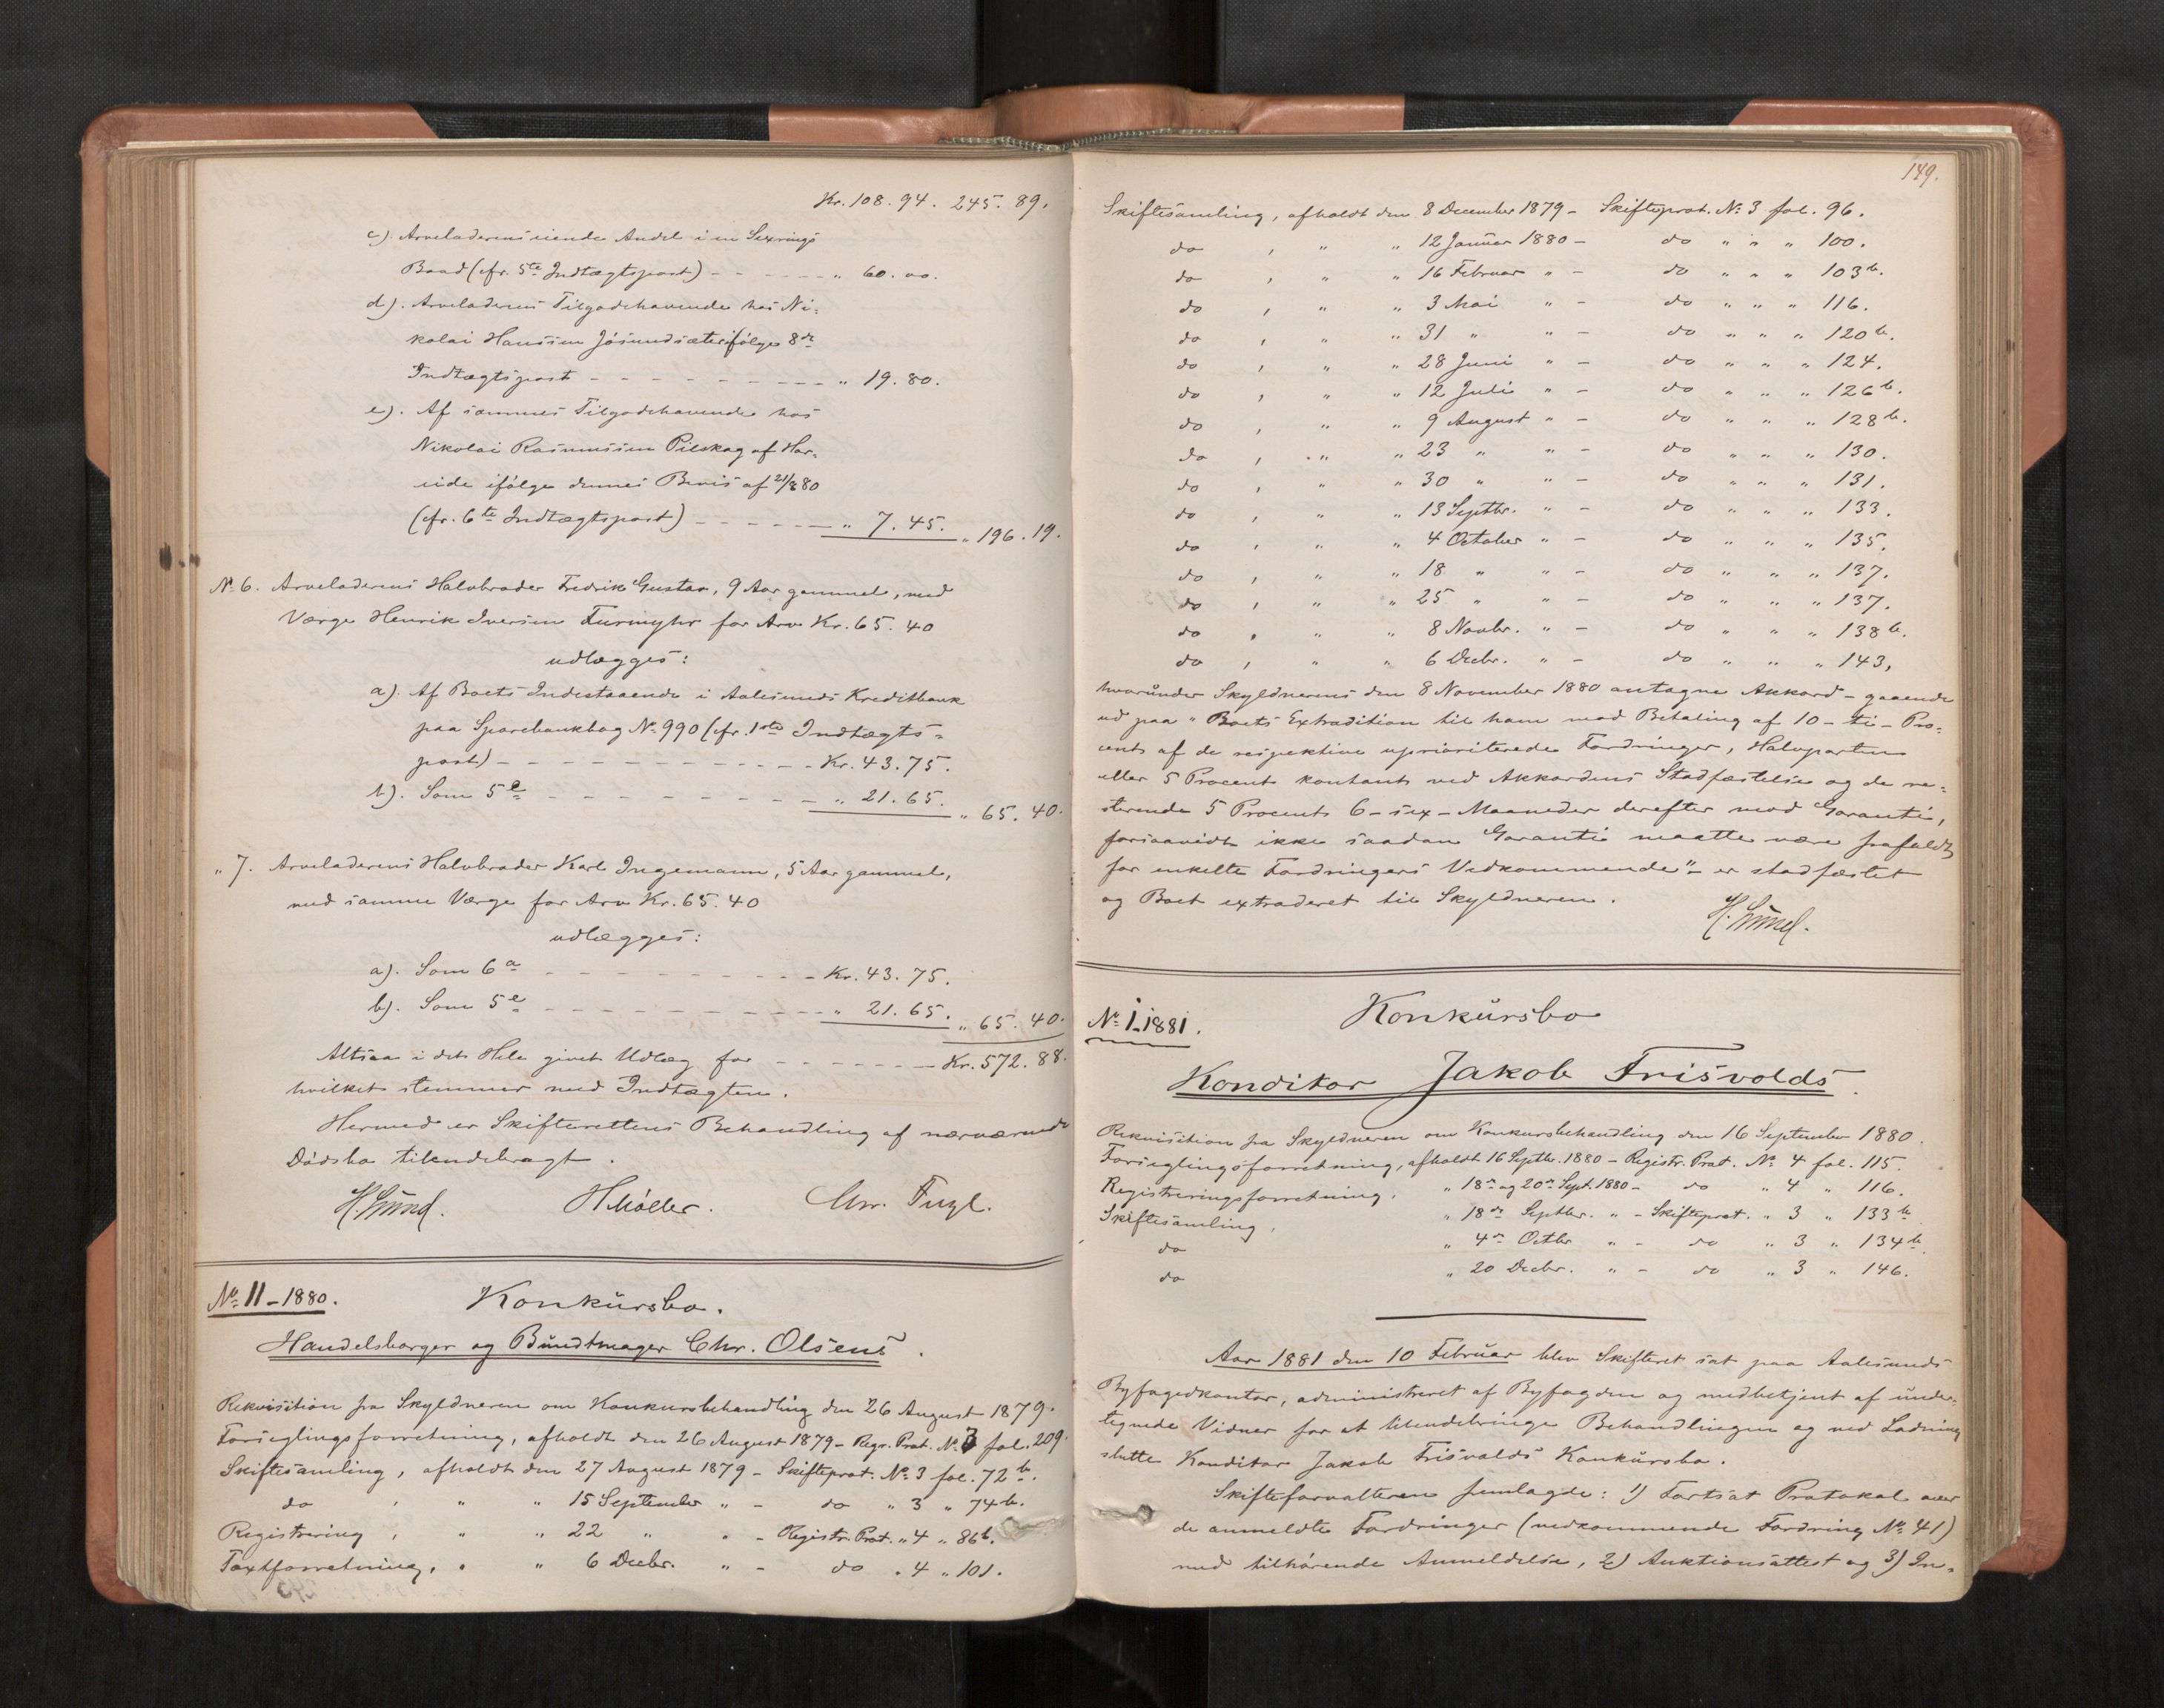 Kr. 108. 94. 245. 89.
c). Arveladerens eiende Andel i en Sexrings
Baad (cfr. 5te Indtægtspost) - - - - - - " 60. oo.
d). Arveladerens Tilgodehavende hos Ni-
kolai Hanssen Jøsundsæter ifølge 8de
Indtægtspost - - - - - - - - - - " 19. 80.
e). Af sammes Tilgodehavende hos
Nikolai Rasmussen Pilskog af Har-
eide ifølge dennes Bevis af 21/8 80
(cfr. 6te Indtægtspost) - - - - - - " 7. 45. " 196. 19.
No 6. Arveladerens Halvbroder Fredrik Gustav, 9 Aar gammel, med
Værge Henrik Iversen Furmyhr for Arv Kr. 65. 40
udlægges:
a). Af Boets Indestaaende i Aalesunds Kreditbank
paa Sparebankbog No 990 (cfr. 1ste Indtægts-
post) - - - - - - - - - - - - Kr. 43. 75.
b). Som 5 e - - - - - - - - - " 21. 65. " 65. 40.
" 7. Arveladerens Halvbroder Karl Ingemann, 5 Aar gammel,
med samme Værge for Arv Kr. 65. 40
udlægges:
a). Som 6 a - - - - - - - - - - Kr. 43. 75.
b). Som 5 e - - - - - - - - - - " 21. 65. " 65. 40.
Altsaa i det Hele givet Udlæg for - - - - - - - Kr. 572. 88.
hvilket stemmer med Indtægten.
Hermed er Skifterettens Behandling af nærværende
Dødsbo tilendebragt.
H. Lund. H. Møller. Chr. Fugl.
No 11 - 1880. Konkursbo.
Handelsborger og Bundtmager Chr. Olsens.
Rekvisition fra Skyldneren om Konkursbehandling den 26 August 1879.
Forseglingsforretning, afholdt den 26 August 1879 - Regr. Prot. No 3 fol. 209.
Skiftesamling, afholdt den 27 August 1879 - Skifteprot. No 3 fol. 72 b.
do , " " 15 September " - do " 3 " 74 b.
Registrering , " " 22 " " - Registr. Prot. " 4 " 86 b.
Taxtforretning, " " 6 Decbr. " - do " 4 " 101.
149.
Skiftesamling, afholdt den 8 December 1879 - Skifteprot. No 3 fol. 96.
do , " " 12 Januar 1880 - do " " " 100.
do , " " 16 Februar " - do " " " 103 b.
do , " " 3 Mai " - do " " " 116.
do , " " 31 " " - do " " " 120 b.
do , " " 28 Juni " - do " " " 124.
do , " " 12 Juli " - do " " " 126 b.
do , " " 9 August " - do " " " 128 b.
do , " " 23 " " - do " " " 130.
do , " " 30 " " - do " " " 131.
do , " " 13 Septbr. " - do " " " 133.
do , " " 4 October " - do " " " 135.
do , " " 18 " " - do " " " 137.
do , " " 25 " " - do " " " 137.
do , " " 8 Novbr. " - do " " " 138 b.
do , " " 6 Decbr. " - do " " " 143,
hvorunder Skyldnerens den 8 November 1880 antagne Akkord - gaaende
ud paa "Boets Extradition til ham mod Betaling af 10 - ti - Pro-
cent af de respektive uprioriterede Fordringer, Halvparten
eller 5 Procent kontant ved Akkordens Stadfæstelse og de re-
sterende 5 Procent 6 - sex - Maaneder derefter mod Garanti,
forsaavidt ikke saadan Garanti maatte være frafaldt
for enkelte Fordringers Vedkommende" - er stadfæstet
og Boet extraderet til Skyldneren.
H. Lund.
No 1 - 1881. Konkursbo
Konditor Jakob Frisvolds.
Rekvisition fra Skyldneren om Konkursbehandling den 16 September 1880.
Forseglingsforretning, afholdt 16 Septbr. 1880 - Registr. Prot. No 4 fol. 115.
Registreringsforretning, " 18de og 20de Sept. 1880 - do " 4 " 116.
Skiftesamling, " 18de Septbr. " - Skifteprot. " 3 " 133 b
do " 4de Octbr " - do " 3 " 134 b.
do " 20 Decbr. " - do " 3 " 146.
Aar 1881 den 10 Februar blev Skifteret sat paa Aalesunds
Byfogedkontor, administreret af Byfogden og medbetjent af under-
tegnede Vidner for at tilendebringe Behandlingen og ved Lodning
slutte Konditor Jakob Frisvolds Konkursbo.
Skifteforvalteren fremlagde: 1) Fortsat Protokol over
de anmeldte Fordringer (vedkommende Fordring No 41)
med tilhørende Anmeldelse, 2) Auktionsattest og 3) In-